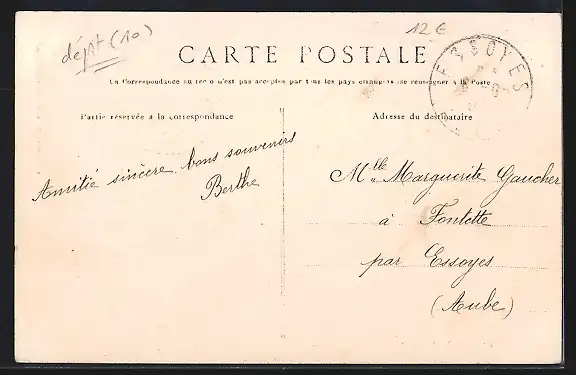 dépt (10)
12€
CARTE POSTALE
La Correspondance au recto n'est pas acceptée par tous les pays étrangers (se renseigner à la Poste
ESSOYES
Partie réservée à la correspondance
Adresse du destinataire
Amitié sincère bons souvenirs
Berthe
Mlle Marguerite Gaucher
à Fontette
par Essoyes
(Aube)